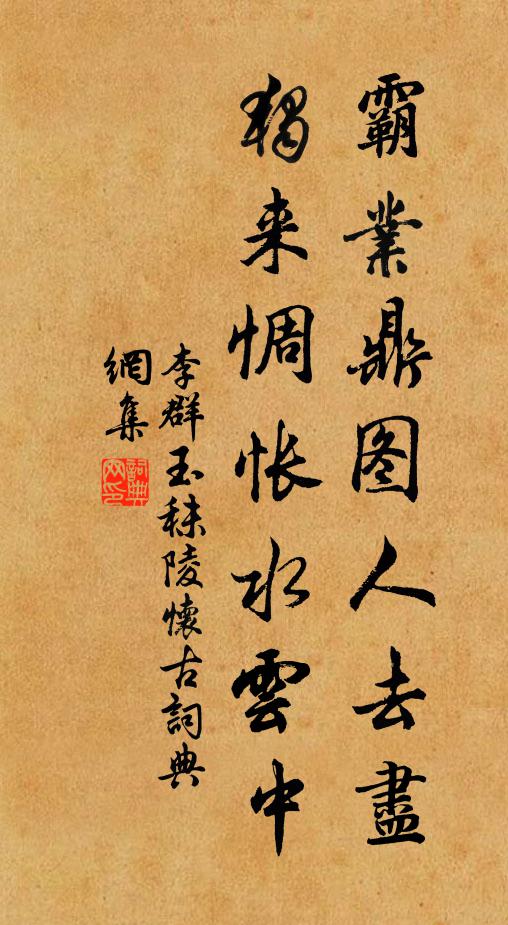 霸業鼎图人去盡
獨来惆怅水雲中
李群玉秣陵懷古詞典
網集
詞典
网印